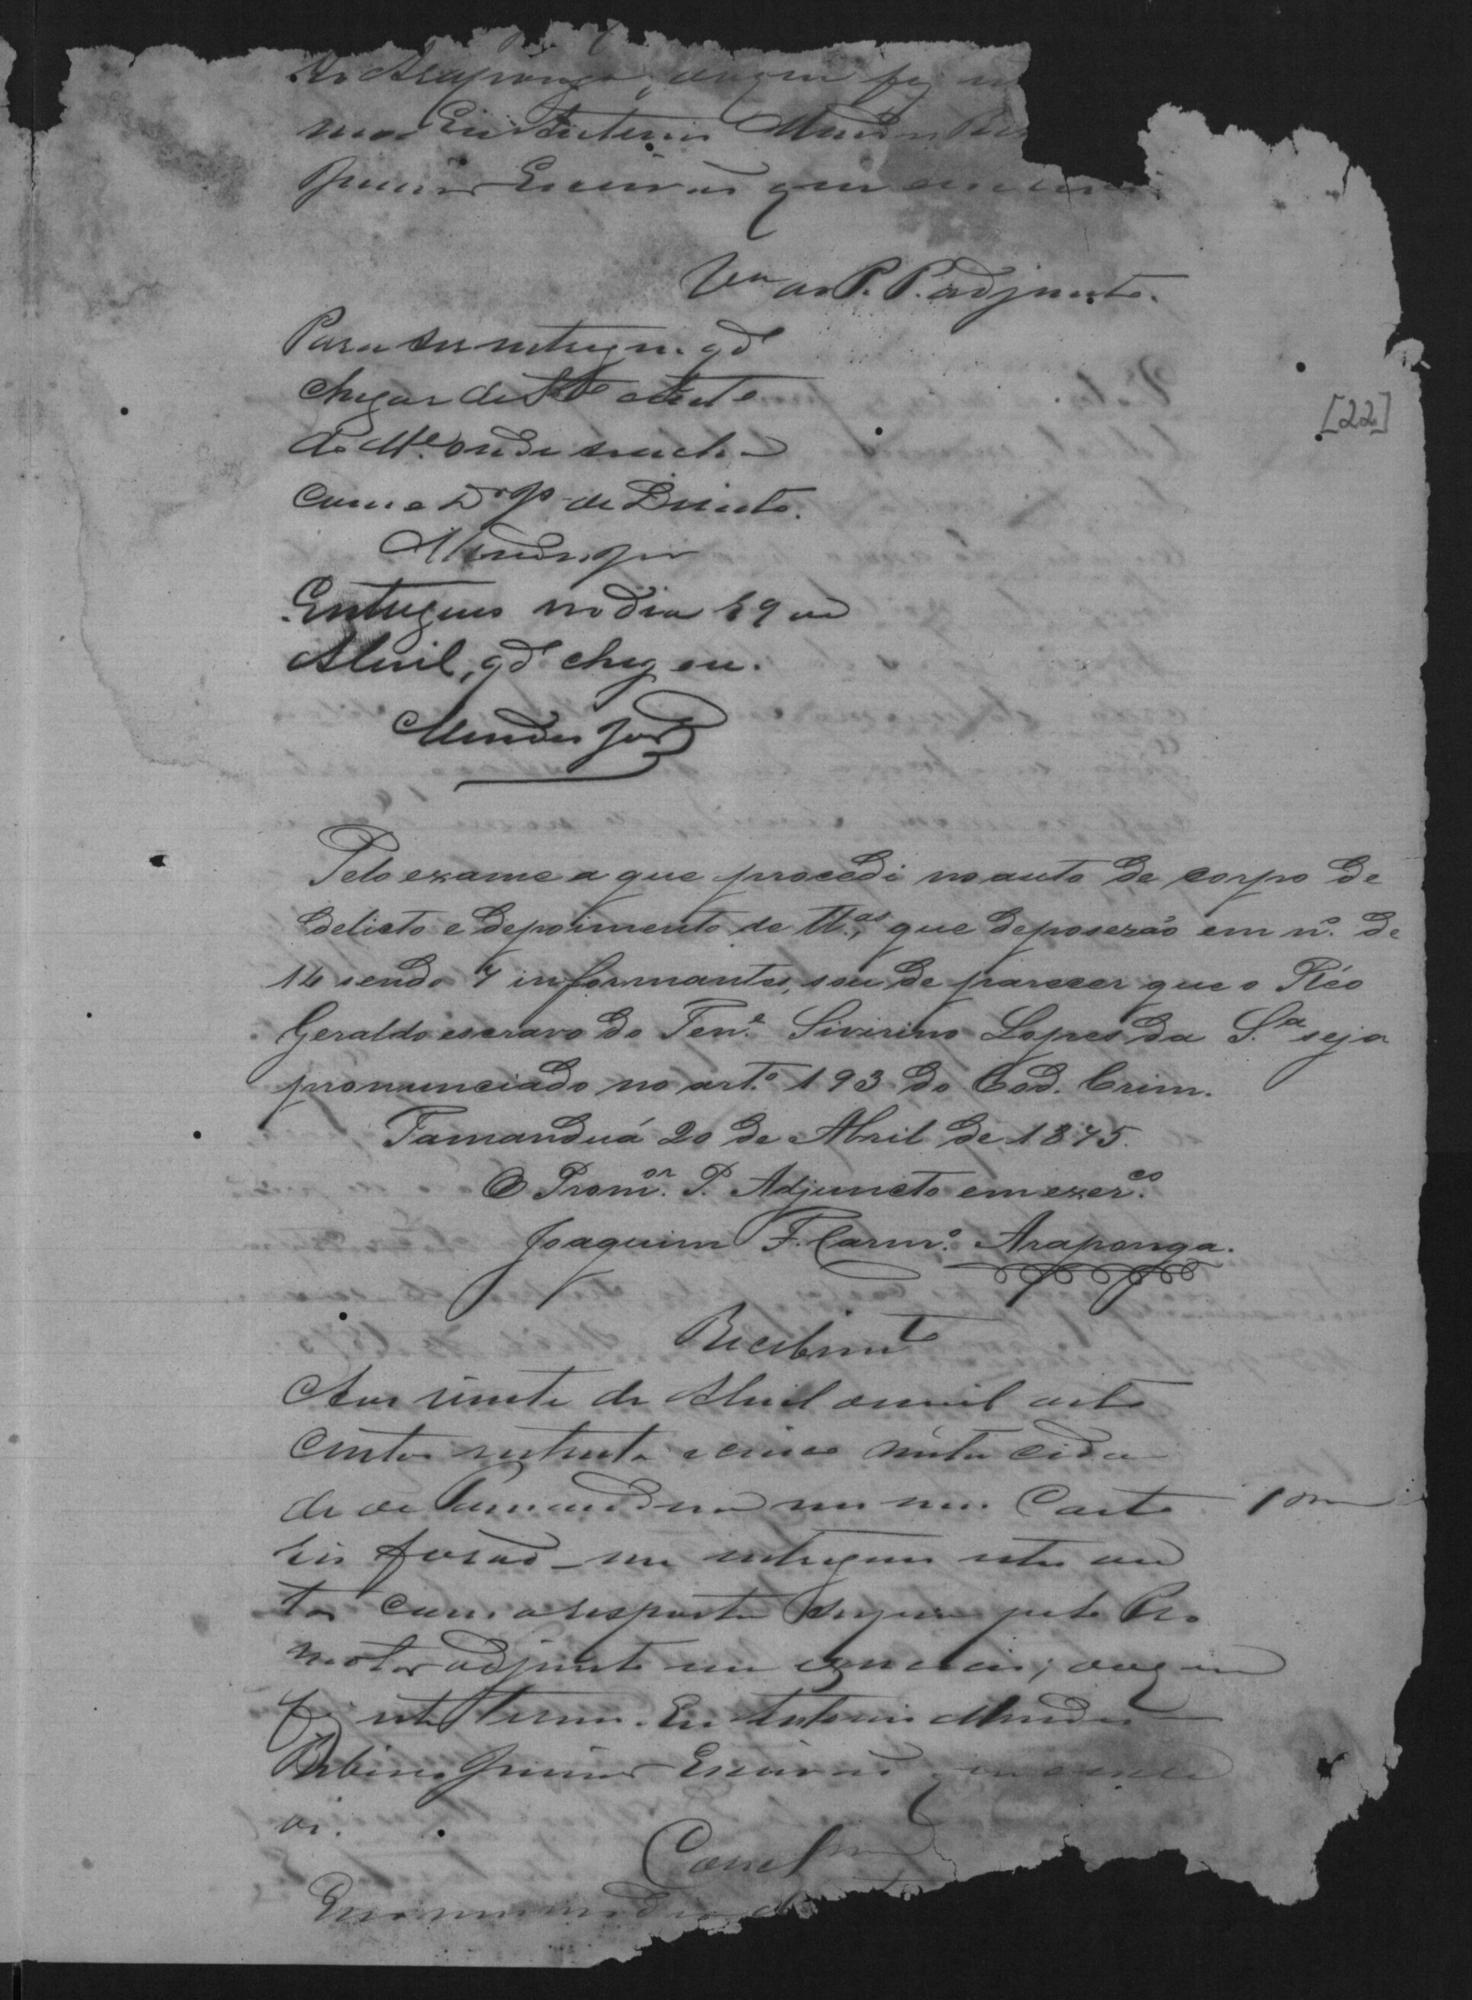 do Araponga, do que fiz
mo Eu Antonio Mendes Ri
Junior Escrivão que escrevi
Vta ao P. P. adjunto.
Para ser entregue qdo
chegar
do Mte. onde
com o Dor Je de
Mendes Jor
Entregues no dia 19 de
Abril, qdo chegou.
Mendes Jor
Pelo exame a que procedi no auto de corpo de
delicto e depoimento de tt.as, que deposerão em n.o de
14 sendo 7 informantes, sou de parecer que o Réo
Geraldo escravo do Ten.e Sivirino Lopes da S.a seja
pronunciado no art.o 193 do Cod. Crim.
Tamanduá 20 de Abril de 1875.
O Prom.or P. Adjuncto em exer.co
Joaquim F. Carm.o Araponga.
[22]
Recebimto
Aos vinte de Abril de mil oito
centos setenta e cinco nesta cida
de de Tamandua em meu Carto
rio forão me entregues estes au
tos com a resposta supra pelo Pro
motor adjunto em exercicio; do que
fiz este termo. Eu Antonio Mendes
Ribeiro Junior Escrivão que escre
vi.
Conclm
E no mesmo dia